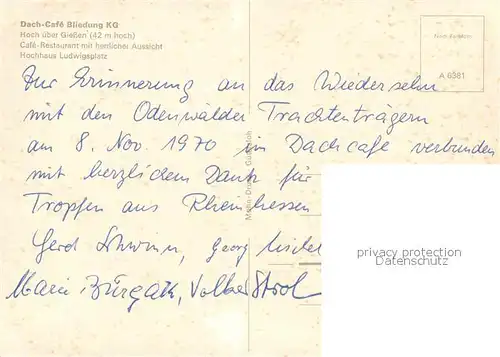 Dach-Café Bliedung KG
Hoch über Gießen (42 m hoch)
Café-Restaurant mit herrlicher Aussicht
Hochhaus Ludwigsplatz
A 6381
Zur Erinnerung an das Wiedersehn
mit den Odenwälder Trachtenträgern
am 8. Nov. 1970 im Dachcafe verbunden
mit herzlichem Dank für
Tropfen aus Rheinhessen
Gerd Schwinn, Georg
Marie Volker
privacy protection
Datenschutz